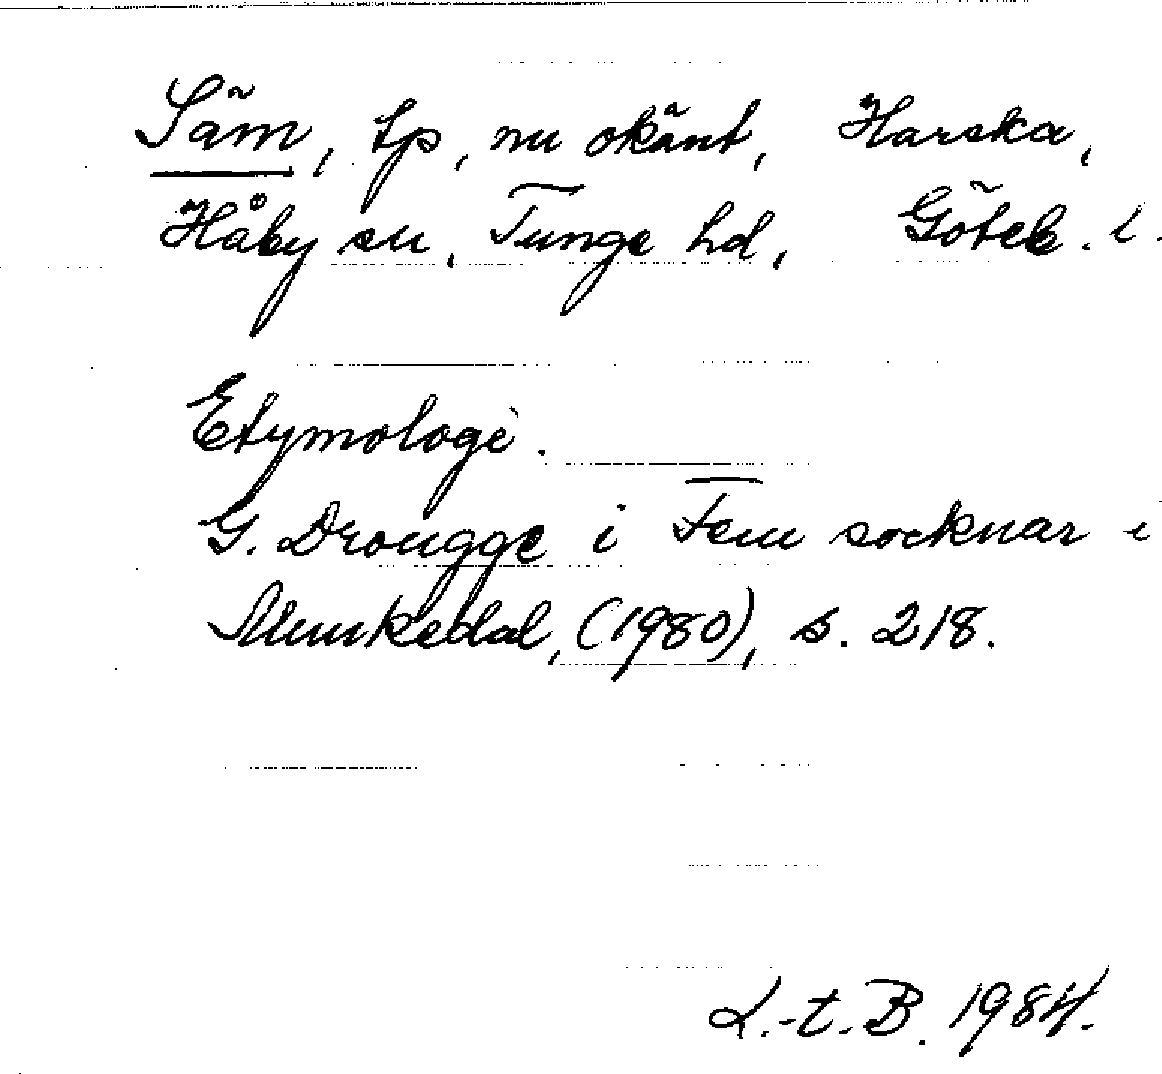 Säm, tp, nu okänt, Harska,
Håby sn, Tunge hd, Göteb. l.
Etymologi.
G. Drougge i Fem socknar i
Munkedal, (1980), s. 218.
L.-t. B. 1984.